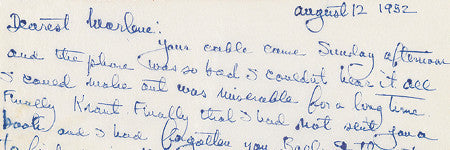 august 12 1952
Dearest Marlene:
Your cable came Sunday afternoon
and the phone was so bad I couldnt hear it all
I could make out was miserable for a long time
Finally Kraut. Finally that I had not sent you a
book and I had forgotten you